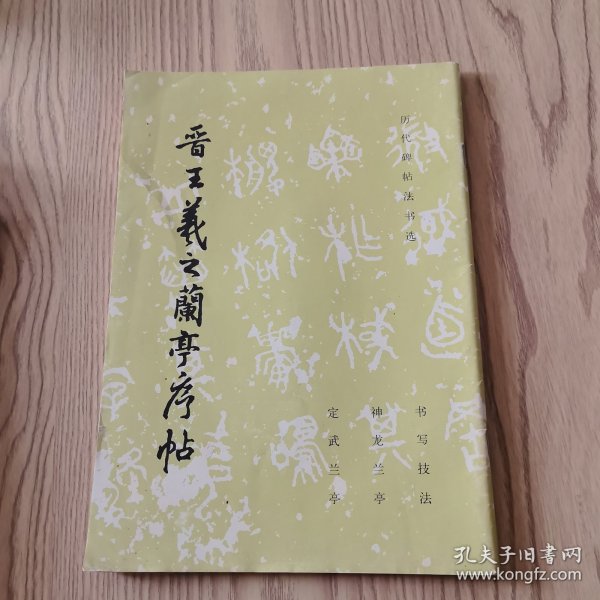 历代碑帖法书选
晋王羲之蘭亭序帖
书写技法
神龙兰亭
定武兰亭
孔夫子旧书网
www.kongfz.com